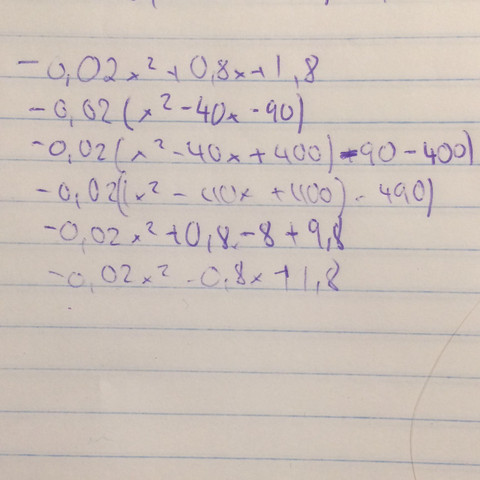 -0,02x² + 0,8x + 1,8
-0,02(x² - 40x - 90)
-0,02(x² - 40x + 400) - 90 - 400)
-0,02(x² - 40x + 400) - 490)
-0,02x² + 0,8 - 8 + 9,8
-0,02x² - 0,8x + 1,8